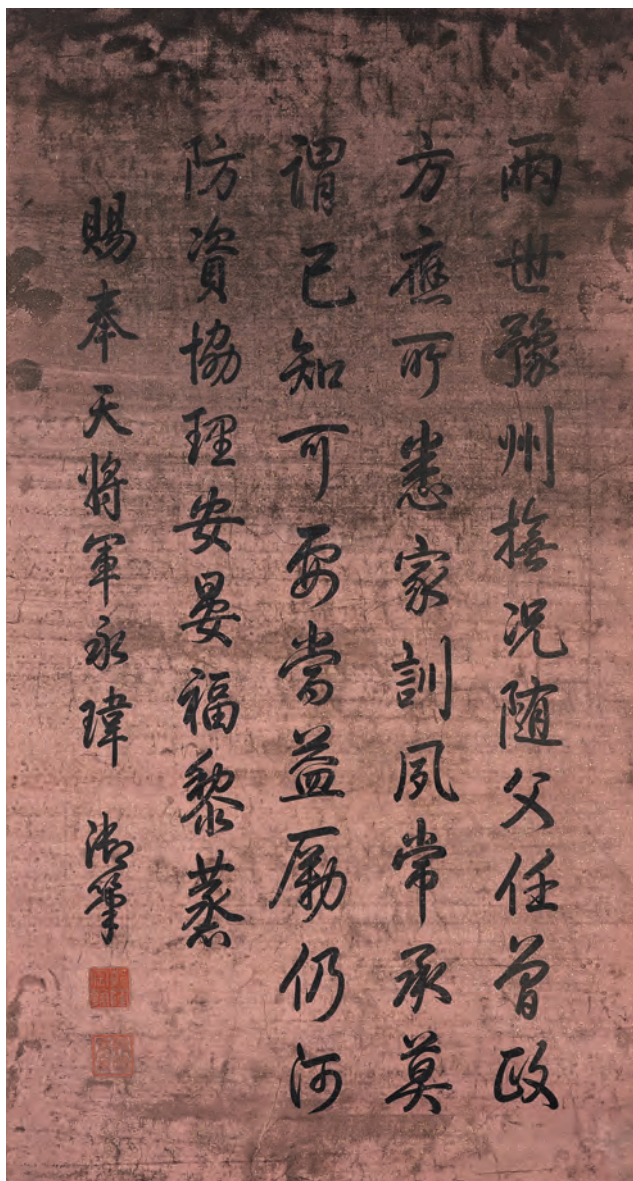 兩世豫州撫況随父任曾政
方應所悉家訓夙常承莫
謂已知可要當益勵仍河
防資協理安晏福黎蒸
賜奉天將軍永瑋 御筆